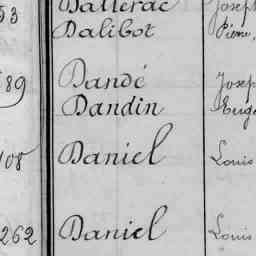 53 Dallerac Joseph
Dalibot Pierre,
89 Dandé Josep
Dandin Eugè
108 Daniel Louis
262 Daniel Louis